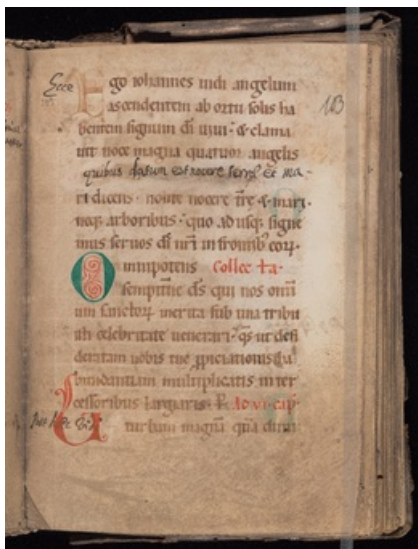 Ecce Ego iohannes uidi angelum
ascendentem ab ortu solis ha
103
bentem signum di uiui · & clama
uit uoce magna quatuor angelis
quibus datum est nocere terrȩ et ma-
ri dicens · nolite nocere trȩ & mari ·
neq; arboribus · quo ad usq; signe
mus seruos di nri in frontib; eoꝝ ·
Omnipotens Collecta ·
sempitne ds qui nos omi
um sanctoꝝ merita sub una tribu
isti celebritate uenerari · qs ut desi
deratam nobis tue ppiciationis ha
bundantiam multiplicatis inter
cessoribus largiaris · P Ad vi cap
Vi turbam magna qua dinu